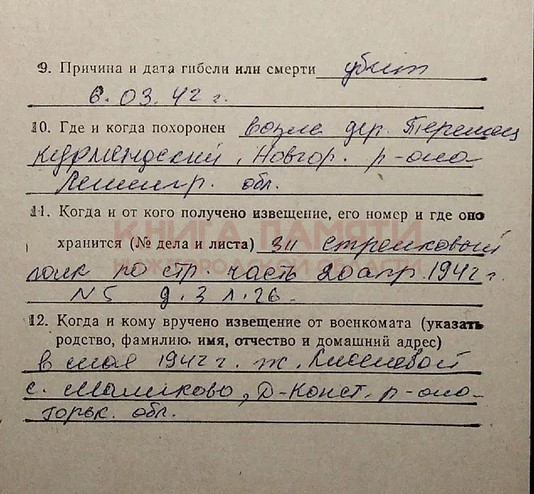 9. Причина и дата гибели или смерти убит
6.03.42 г.
10. Где и когда похоронен возле дер. Теремец
Курляндский, Новгор. р-она
Ленингр. обл.
11. Когда и от кого получено извещение, его номер и где оно
хранится (№ дела и листа) 311 стрелковый
КНИГА ПАМЯТИ
полк по стр. часть 20 апр. 1942 г.
НИЖЕГОРОДСКОЙ ОБЛАСТИ
N 5 д. 3 л. 26.
12. Когда и кому вручено извещение от военкомата (указать
родство, фамилию, имя, отчество и домашний адрес)
в мае 1942 г. ж.
с. Маликово, Д-Конст. р-она
Горьк. обл.